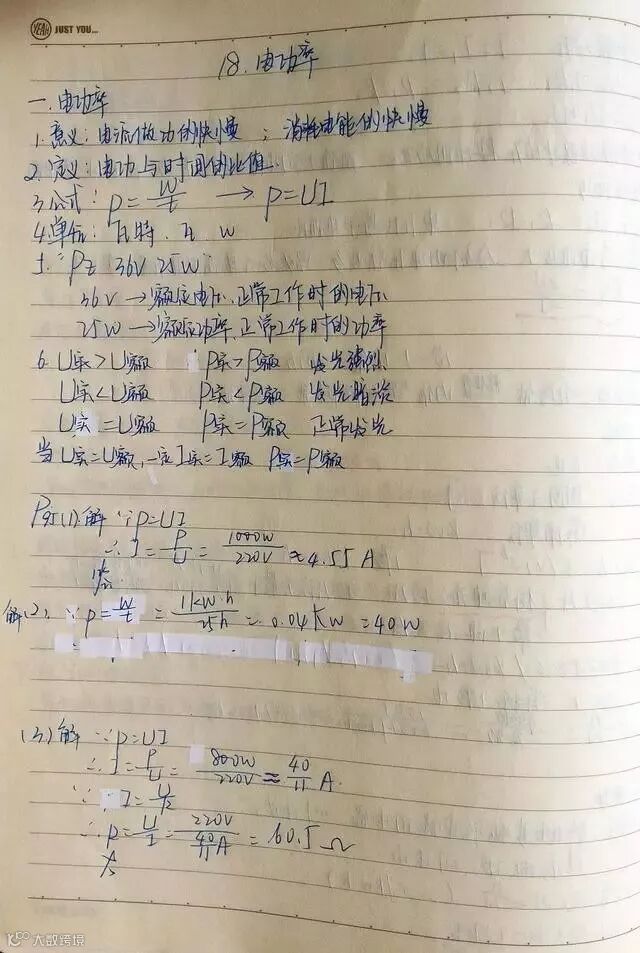 YEAH JUST YOU...
18. 电功率
一. 电功率
1. 意义: 电流做功的快慢 ; 消耗电能的快慢
2. 定义: 电功与时间的比值.
3. 公式: P = W/t → P=UI
4. 单位: 瓦特. 瓦 W
PZ 36V 25W
36V → 额定电压. 正常工作时的电压
25W → 额定功率. 正常工作时的功率
6. U实>U额 P实>P额 发光强烈
U实<U额 P实<P额 发光暗淡
U实=U额 P实=P额 正常发光
当U实=U额, 一定I实=I额 P实=P额
P95(1)解 ∵P=UI
∴I = P/U = 1000W/220V ≈ 4.55A
解(2): ∵ P = W/t = 1kW·h/25h = 0.04kW = 40W
=
(3)解 ∵P=UI
∴I = P/U = 800W/220V ≈ 40/11 A.
∵ I = U/R
∴ = U/I = 220V/(40/11 A) = 60.5Ω
大数跨境